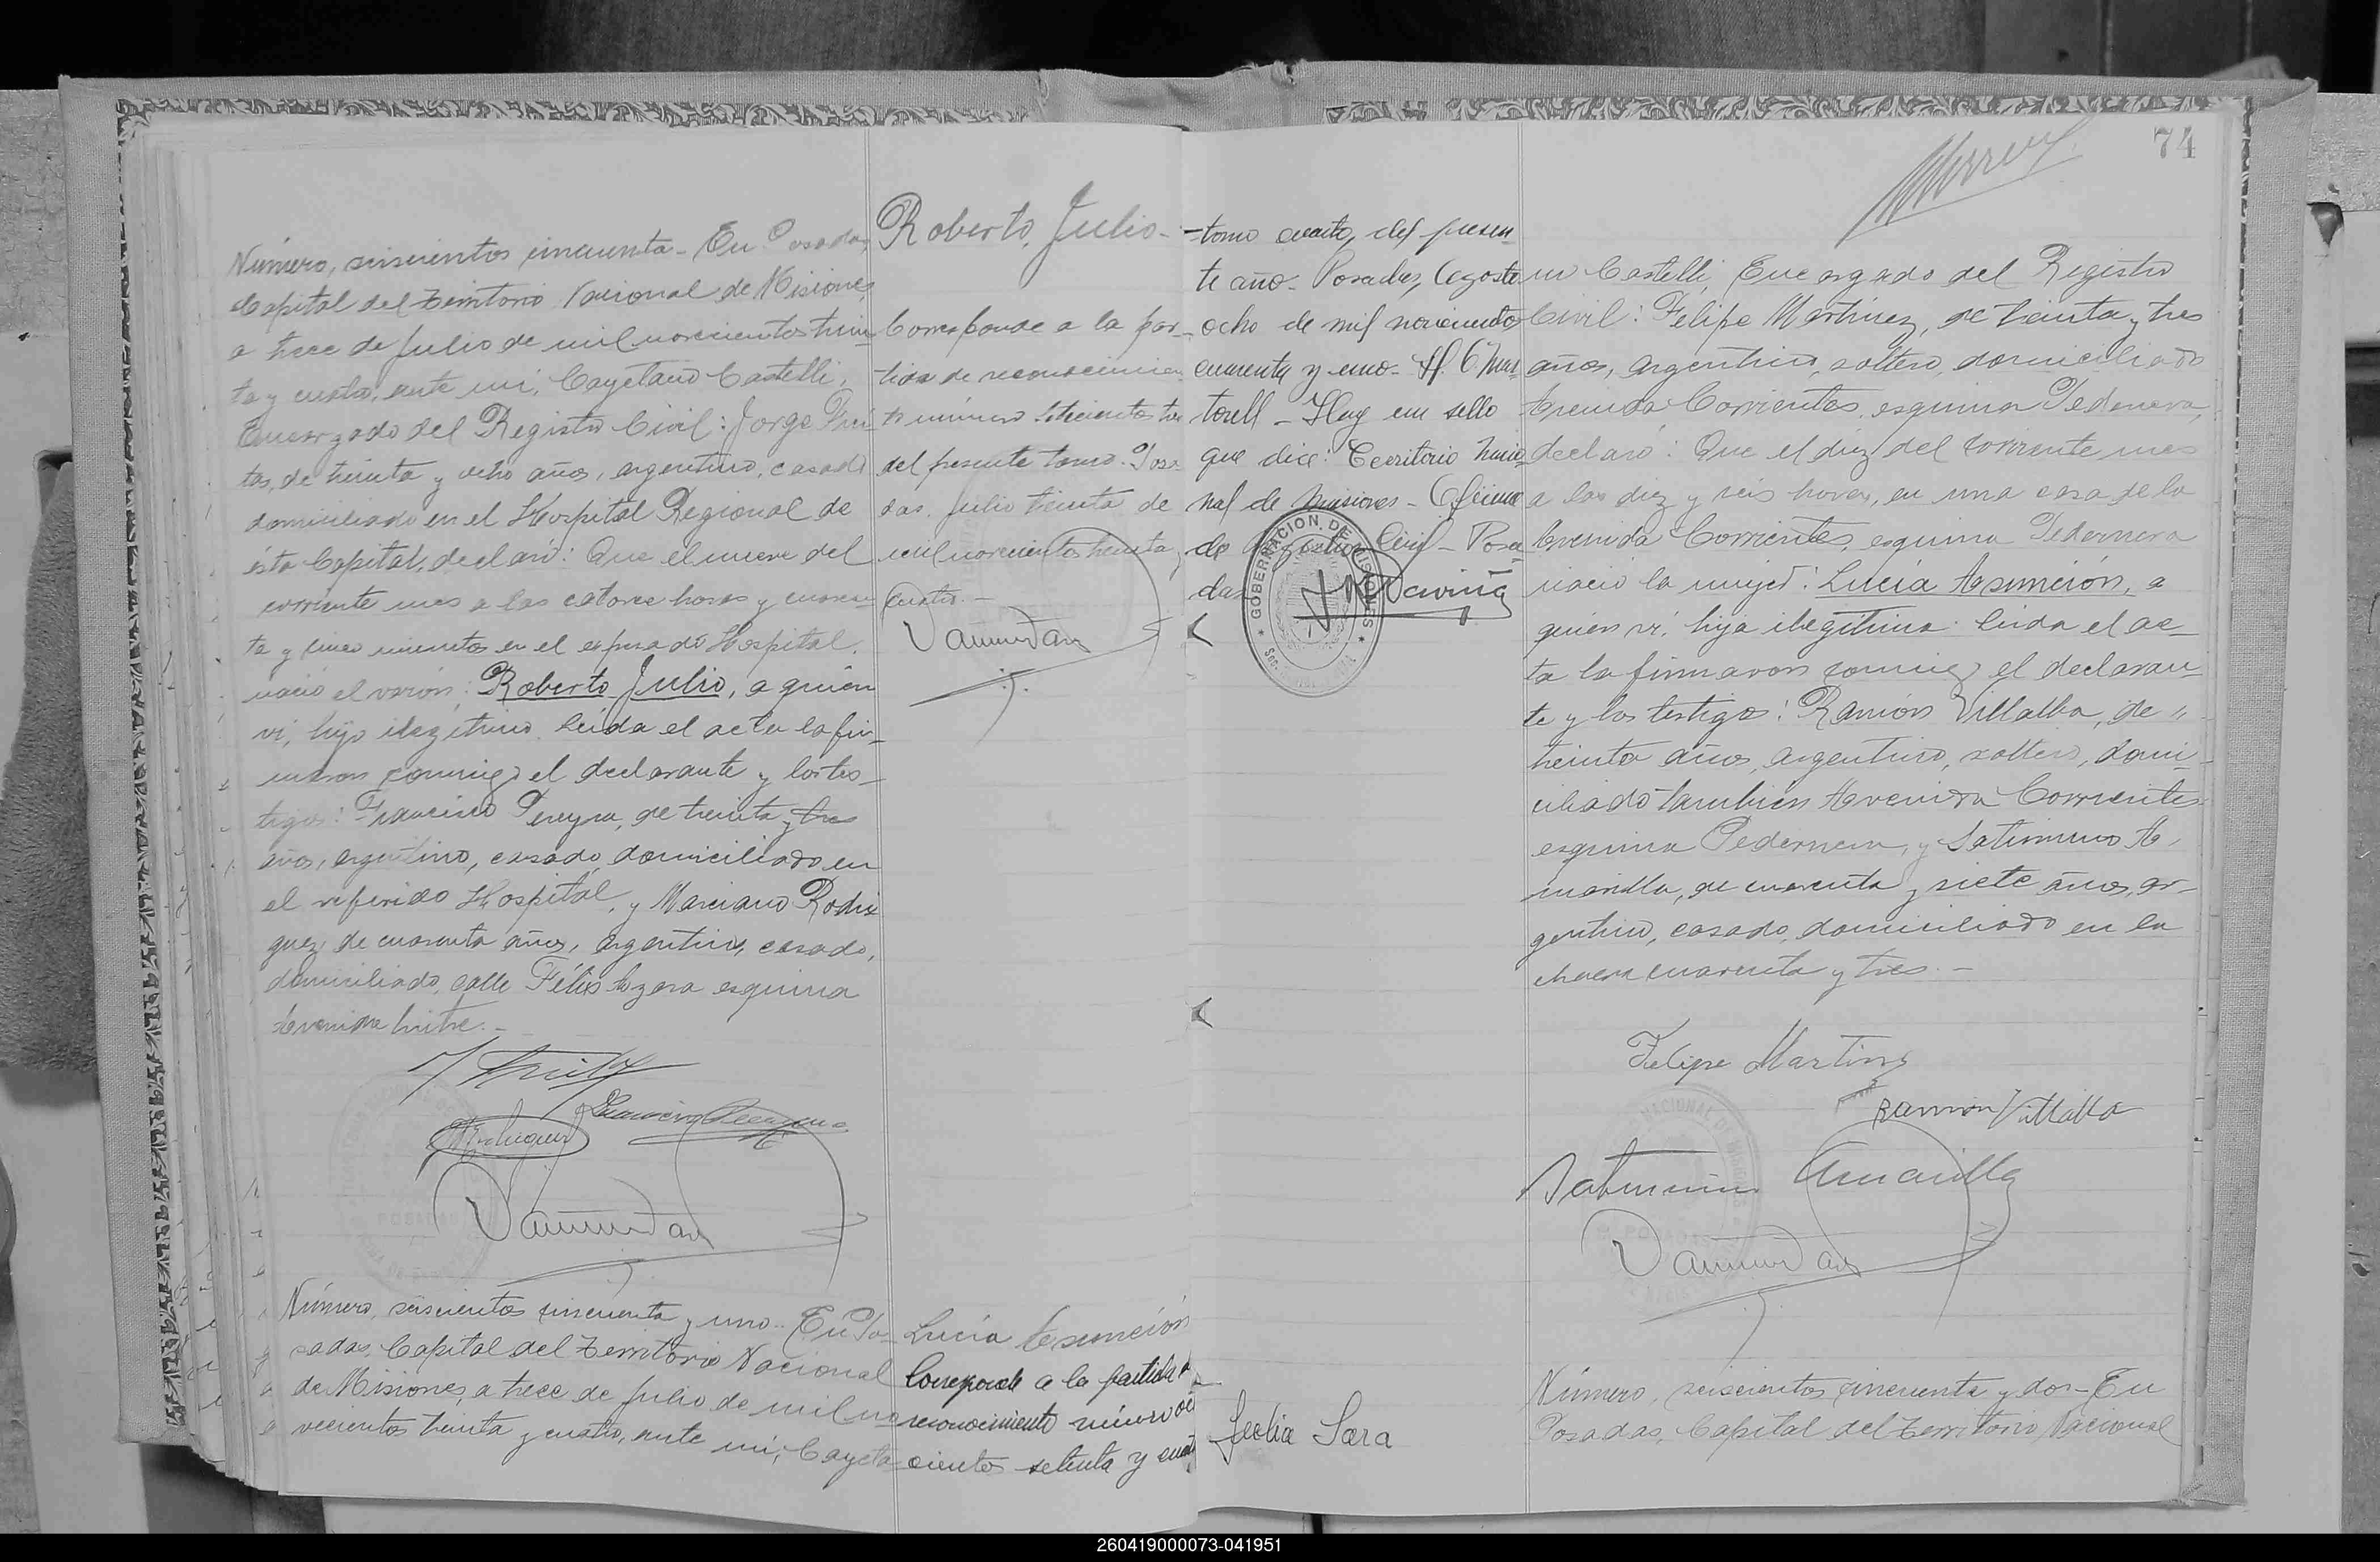 Número, seiscientos cincuenta - En Posadas,
Capital del Territorio Nacional de Misiones,
a trece de Julio de mil novecientos trein
ta y cuatro, ante mí, Cayetano Castelli,
Encargado del Registro Civil: Jorge
tas, de treinta y ocho años, argentino, casado
domiciliado en el Hospital Regional de
ésta Capital, declaró: Que el nueve del
corriente mes a las catorce horas y cuaren
ta y cinco minutos en el expresado Hospital,
nació el varón: Roberto Julio, a quien
ví, hijo ilegítimo. Leída el acta la fir-
maron conmigo el declarante y los tes-
tigos: Francisco Pereyra, de treinta y tres
años, argentino, casado, domiciliado en
el referido Hospital, y Marciano Rodri
guez, de cuarenta años, argentino, casado,
domiciliado, calle Félix Azara esquina
Avenida Mitre. -
Número, seiscientos cincuenta y uno - En Po-
sadas, Capital del Territorio Nacional
de Misiones, a trece de Julio de mil no-
vecientos treinta y cuatro, ante mí, Cayeta-
Roberto, Julio -
Corresponde a la par-
tida de reconocimien
to número setecientos tres
del presente tomo. Posa
das, Julio treinta de
mil novecientos treinta y
cuatro. -
Lucía Asunción
Corresponde a la partida de
reconocimiento número och
cientos setenta y cuat
tomo cuarto, del presen
te año - Posadas, Agosto
ocho de mil novecientos
cuarenta y uno - H. C Mar
torell - Hay un sello
que dice: Territorio Nacio
nal de Misiones - Oficina
de Registro Civil - Posa
das
GOBERNACION DE MISIONES
Julia Sara
74
no Castelli, Encargado del Registro
Civil: Felipe Martínez, de treinta y tres
años, argentino, soltero, domiciliado
Avenida Corrientes, esquina Pedernera,
declaró: Que el diez del corriente mes
a las diez y seis horas, en una casa de la
Avenida Corrientes, esquina Pedernera
nació la mujer: Lucía Asunción, a
quien ví, hija ilegítima. Leída el ac-
ta la firmaron conmigo el declaran-
te y los testigos: Ramón Villalba, de "
treinta años, argentino, soltero, domi-
ciliado también Avenida Corrientes
esquina Pedernera, y Saturnino A-
marilla, de cuarenta y siete años, ar-
gentino, casado, domiciliado en la
chacra cuarenta y tres. -
Felipe Martinez
Ramón Villalba
Saturnino Amarilla
Número, seiscientos cincuenta y dos - En
Posadas, Capital del Territorio Nacional
260419000073-041951